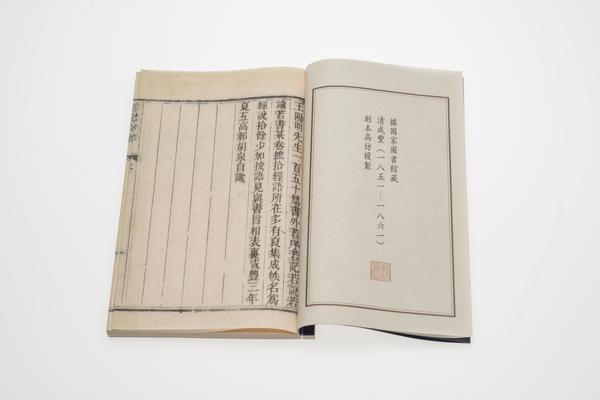 據國家圖書館藏
清咸豐（一八五一—一八六一）
刻本高仿複製
王陽明先生一百五十
書外若序若記若說若
論若書某卷摭拾經語所在多有裒集成帙名爲
經說拾餘少加按語見與書旨相表裏咸豐三年
夏五高郵胡泉自識